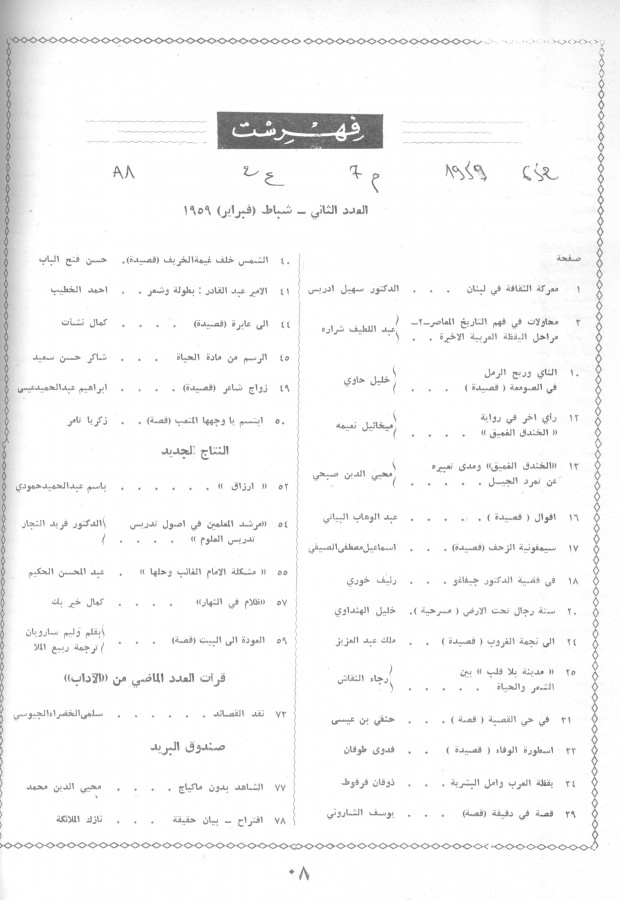 فهرست
٨٨ ع ٢ م 7 1959
العدد الثاني – شباط (فبراير) ١٩٥٩
صفحة
١ معركة الثقافة في لبنان . . . الدكتور سهيل ادريس
٣ محاولات في فهم التاريخ المعاصر –٢–
مراحل اليقظة العربية الاخيرة . . عبد اللطيف شراره
١٠ الناي وريح الرمل
في الصومعة ( قصيدة ) . . . خليل حاوي
١٢ رأي اخر في رواية
« الخندق الغميق » . . . . ميخائيل نعيمه
١٣ «الخندق الغميق» ومدى تعبيره
عن تمرد الجيل . . . . . محيي الدين صبحي
١٦ اقوال ( قصيدة ) . . . . . عبد الوهاب البياتي
١٧ سيمفونية الزحف (قصيدة) . . اسماعيل مصطفى الصيفي
١٨ في قضية الدكتور جيفاغو . . . رئيف خوري
٢٠ ستة رجال تحت الارض ( مسرحية ) . خليل الهنداوي
٢٤ الى نجمة الغروب ( قصيدة ) . . ملك عبد العزيز
٢٥ « مدينة بلا قلب » بين
الشعر والحياة . . . . . رجاء النقاش
٣١ في حي القصبة ( قصة ) . . حنفي بن عيسى
٣٣ اسطورة الوفاء ( قصيدة ) . . فدوى طوقان
٣٤ يقظة العرب وامل البشرية . . ذوقان قرقوط
٣٩ قصة في دقيقة (قصة) . . . يوسف الشاروني
٤٠ الشمس خلف غيمة الخريف (قصيدة) . حسن فتح الباب
٤١ الامير عبد القادر : بطولة وشعر . . احمد الخطيب
٤٤ الى عابرة (قصيدة) . . . . كمال نشأت
٤٥ الرسم من مادة الحياة . . . شاكر حسن سعيد
٤٩ زواج شاعر (قصيدة) . . . . ابراهيم عبد الحميد عيسى
٥٠ ابتسم يا وجهها المتعب (قصة) . . زكريا تامر
النتاج الجديد
٥٢ « ارزاق » . . . . . . باسم عبد الحميد حمودي
٥٤ «مرشد المعلمين في اصول تدريس
تدريس العلوم » . . . . الدكتور فريد النجار
٥٥ « مشكلة الامام الغائب وحلها » . عبد المحسن الحكيم
٥٧ «ظلام في النهار» . . . . كمال خير بك
٥٩ العودة الى البيت (قصة) . . بقلم وليم سارويان
ترجمة ربيع الملا
قرأت العدد الماضي من «الآداب»
٧٣ نقد القصائد . . . . . . سلمى الخضراء الجيوسي
صندوق البريد
٧٧ الشاهد بدون ماكياج . . . . محيي الدين محمد
٧٨ اقتراح – بيان حقيقة . . . نازك الملائكة
٠٨